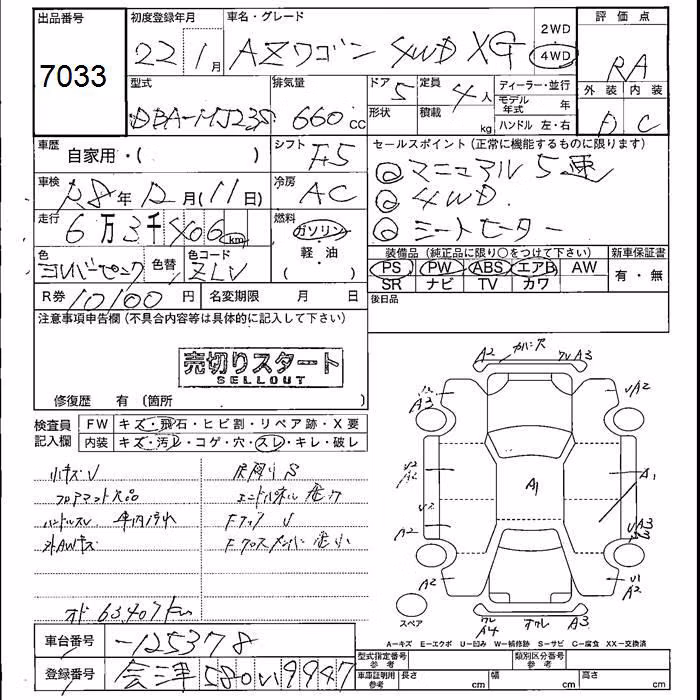 出品番号
7033
初度登録年月
22 1月
車名・グレード
AZワゴン 4WD XG
2WD
4WD
評価点
RA
外装 内装
D C
型式
DBA-MJ23S
排気量
660cc
ドア
5
形状
定員
4人
積載
kg
ディーラー・並行
モデル年式 年
ハンドル 左・右
車歴
自家用・( )
シフト
F5
セールスポイント(正常に機能するものに限ります)
◎マニュアル5速
◎4WD
◎シートヒーター
車検
R8年12月(11日)
冷房
AC
走行
6万3千406km
燃料
ガソリン
軽・油
色
色替
色コード
ZLV
装備品(純正品に限り○をつけて下さい)
PS PW ABS エアB AW
SR ナビ TV カワ
新車保証書
有・無
R券 10100円
名変期限 月 日
後日品
注意事項申告欄(不具合内容等は具体的に記入して下さい)
売切りスタート
SELLOUT
修復歴 有(箇所 )
検査員記入欄
FW キズ・飛石・ヒビ割・リペア跡・X要
内装 キズ・汚レ・コゲ・穴・スレ・キレ・破レ
小キズV
フロアマット欠品
ハンドルスレ 車内汚れ
外AWキズ
エンドパネル
Fフック V
Fクロスメンバー
オド 63407km
A2
カバー穴
A3
A2
A3
A2
A1
A1
V2
A2
V2
A2
A3
A2
V1
A2
スペア
A4
A3
A=キズ E=エクボ U=凹み W=補修跡 S=サビ C=腐食 XX=交換済
車台番号
-125378
登録番号
会津 580 い 9947
型式指定番号 参考
類別区分番号 参考
車庫証明用 参考
長さ cm
幅 cm
高さ cm